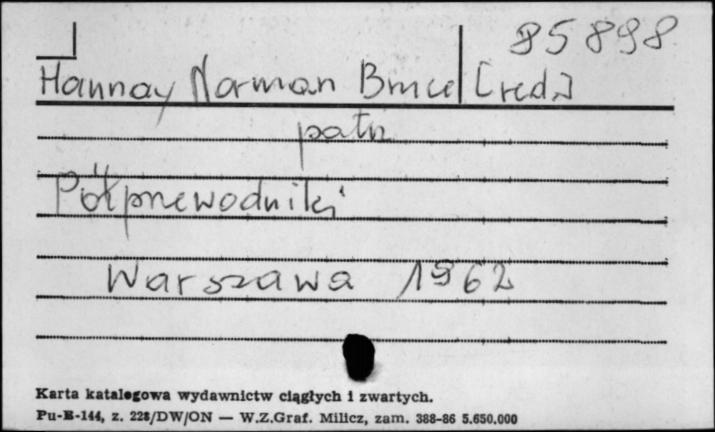 85898
Hannay Norman Bruce [red.]
patrz
Półprzewodniki
Warszawa 1962
Karta katalogowa wydawnictw ciągłych i zwartych.
Pu-B-144, z. 228/DW/ON — W.Z.Graf. Milicz, zam. 388-86 5.650.000